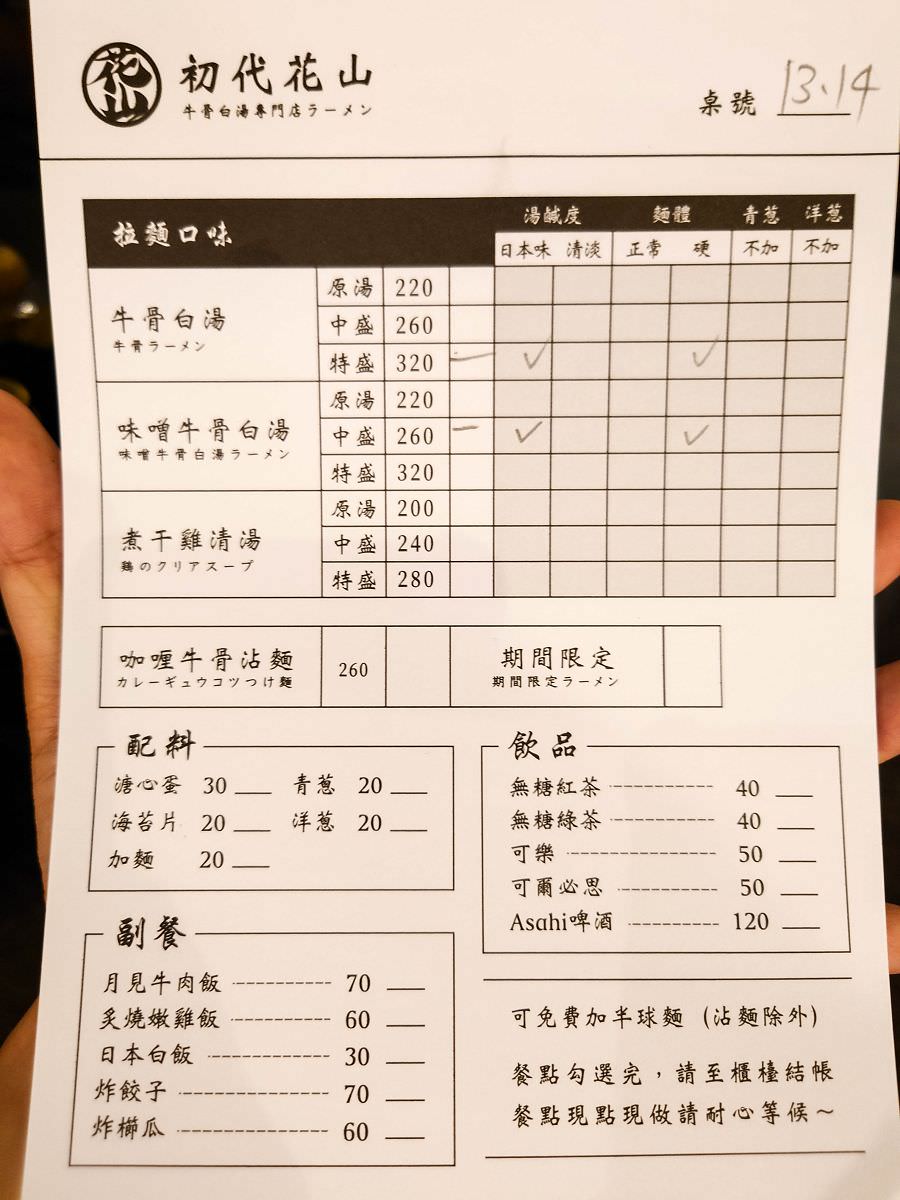 花山
初代花山
牛骨白湯專門店ラーメン
桌號 13、14
拉麵口味 湯鹹度 麵體 青蔥 洋蔥
日本味 清淡 正常 硬 不加 不加
牛骨白湯
牛骨ラーメン
原湯 220
中盛 260
特盛 320 一 ✓ ✓
味噌牛骨白湯
味噌牛骨白湯ラーメン
原湯 220
中盛 260 一 ✓ ✓
特盛 320
煮干雞清湯
鶏のクリアスープ
原湯 200
中盛 240
特盛 280
咖喱牛骨沾麵 260
カレーギュウコツつけ麵
期間限定
期間限定ラーメン
配料
溏心蛋 30 青蔥 20
海苔片 20 洋蔥 20
加麵 20
飲品
無糖紅茶 40
無糖綠茶 40
可樂 50
可爾必思 50
Asahi啤酒 120
副餐
月見牛肉飯 70
炙燒嫩雞飯 60
日本白飯 30
炸餃子 70
炸櫛瓜 60
可免費加半球麵（沾麵除外）
餐點勾選完，請至櫃檯結帳
餐點現點現做請耐心等候～